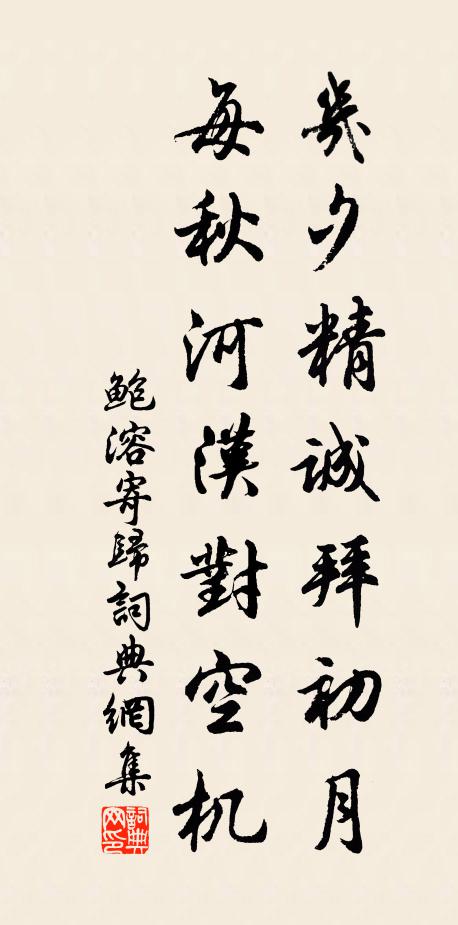 幾夕精誠拜初月
每秋河漢對空机
鮑溶寄歸詞典網集
詞典网印